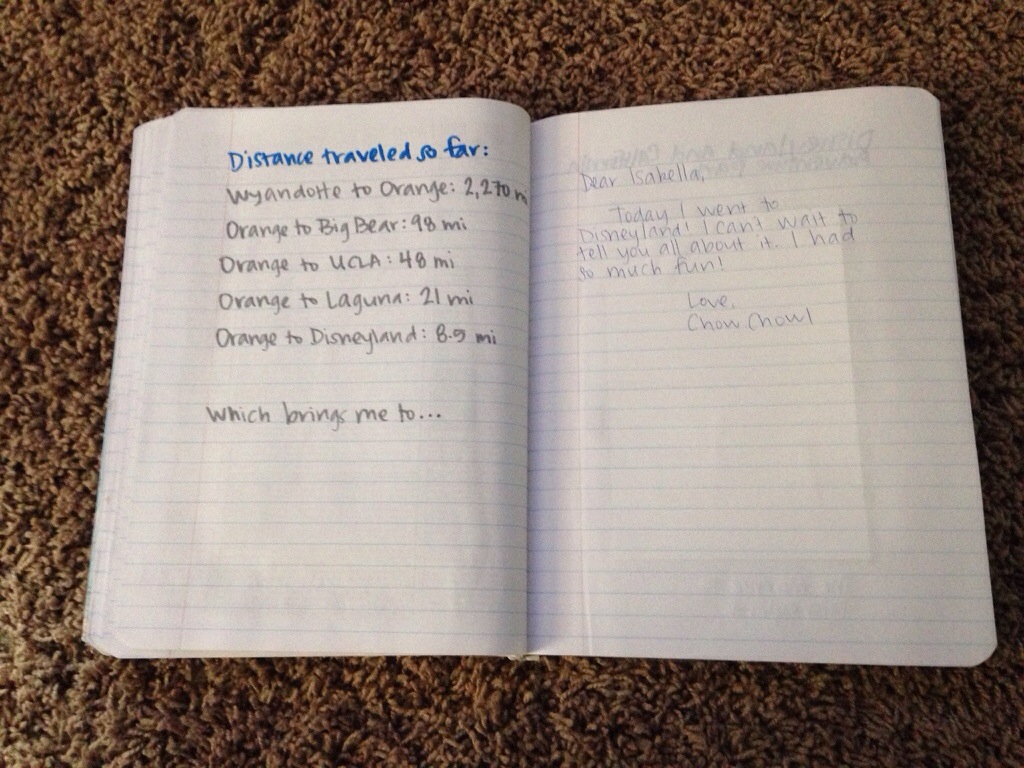 Distance traveled so far:
Wyandotte to Orange: 2,270 mi
Orange to Big Bear: 98 mi
Orange to UCLA: 48 mi
Orange to Laguna: 21 mi
Orange to Disneyland: 8.5 mi
Which brings me to...
Dear Isabella,
Today I went to
Disneyland! I can't wait to
tell you all about it. I had
so much fun!
Love,
Chow Chow!